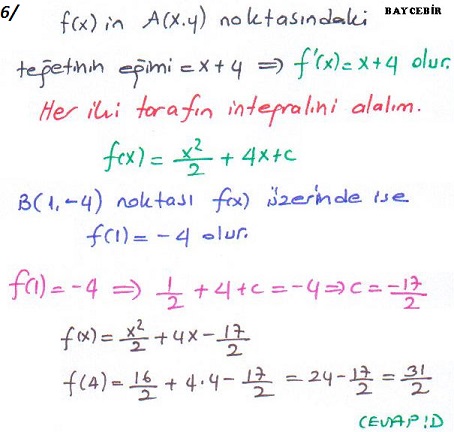 6/ f(x) in A(x.y) noktasındaki BAYCEBİR
teğetinin eğimi = x+4 ⇒ f'(x) = x+4 olur.
Her iki tarafın integralini alalım.
f(x) = x²/2 + 4x+c
B(1,-4) noktası f(x) üzerinde ise
f(1) = -4 olur.
f(1) = -4 ⇒ 1/2 + 4+c = -4 ⇒ c = -17/2
f(x) = x²/2 + 4x - 17/2
f(4) = 16/2 + 4.4 - 17/2 = 24 - 17/2 = 31/2
CEVAP!D